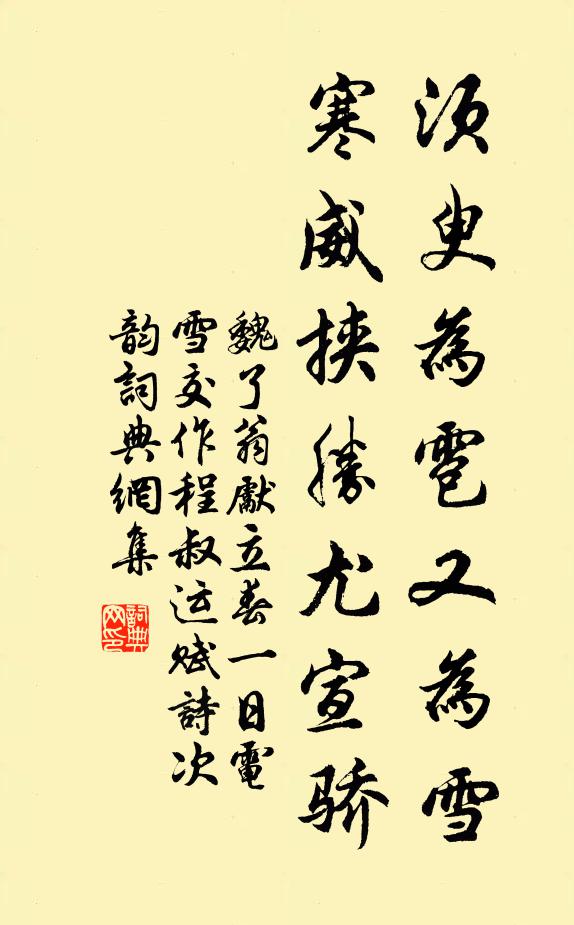 須臾為雹又為雪
寒威挾勝尤宣骄
魏了翁獻立春一日電
雪交作程叔运賦詩次
韵詞典網集
詞典网印